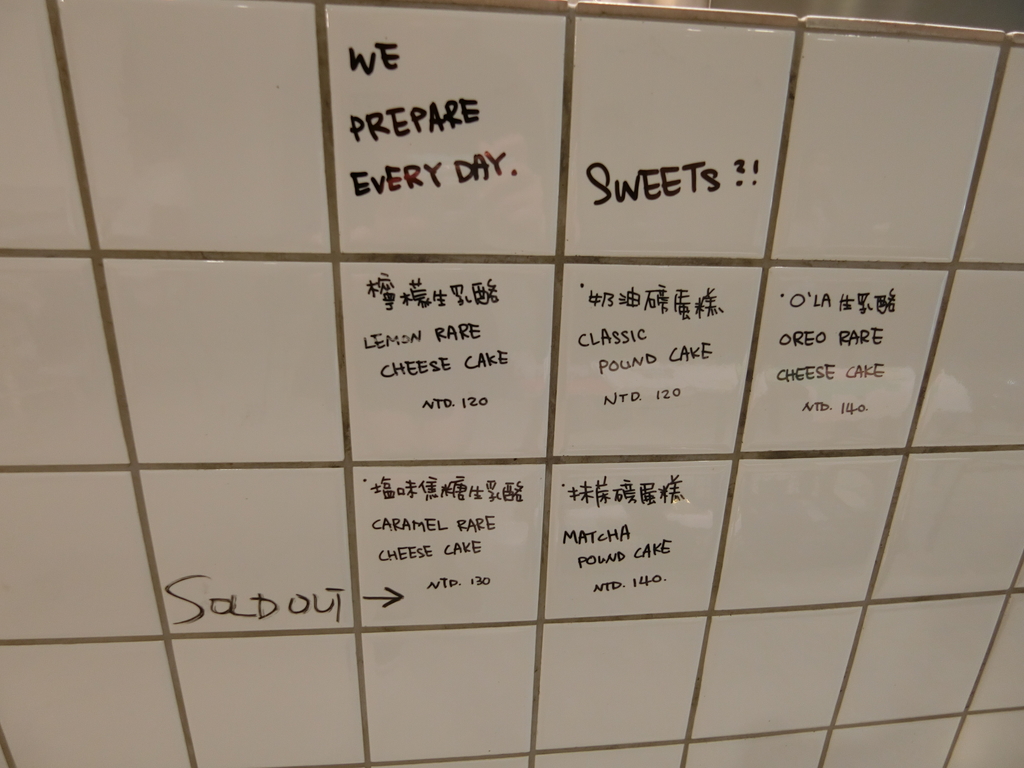 WE
PREPARE
EVERY DAY.
SWEETS ?!
檸檬生乳酪
LEMON RARE
CHEESE CAKE
NTD. 120
·奶油磅蛋糕
CLASSIC
POUND CAKE
NTD. 120
·O'LA 生乳酪
OREO RARE
CHEESE CAKE
NTD. 140.
·塩味焦糖生乳酪
CARAMEL RARE
CHEESE CAKE
NTD. 130
·抹茶磅蛋糕
MATCHA
POUND CAKE
NTD. 140.
SOLD OUT →